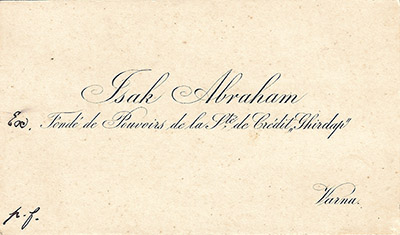 Isak Abraham
Ex. Fondé de Pouvoirs de la Sté de Crédit „Ghirdap"
Varna.
p.f.